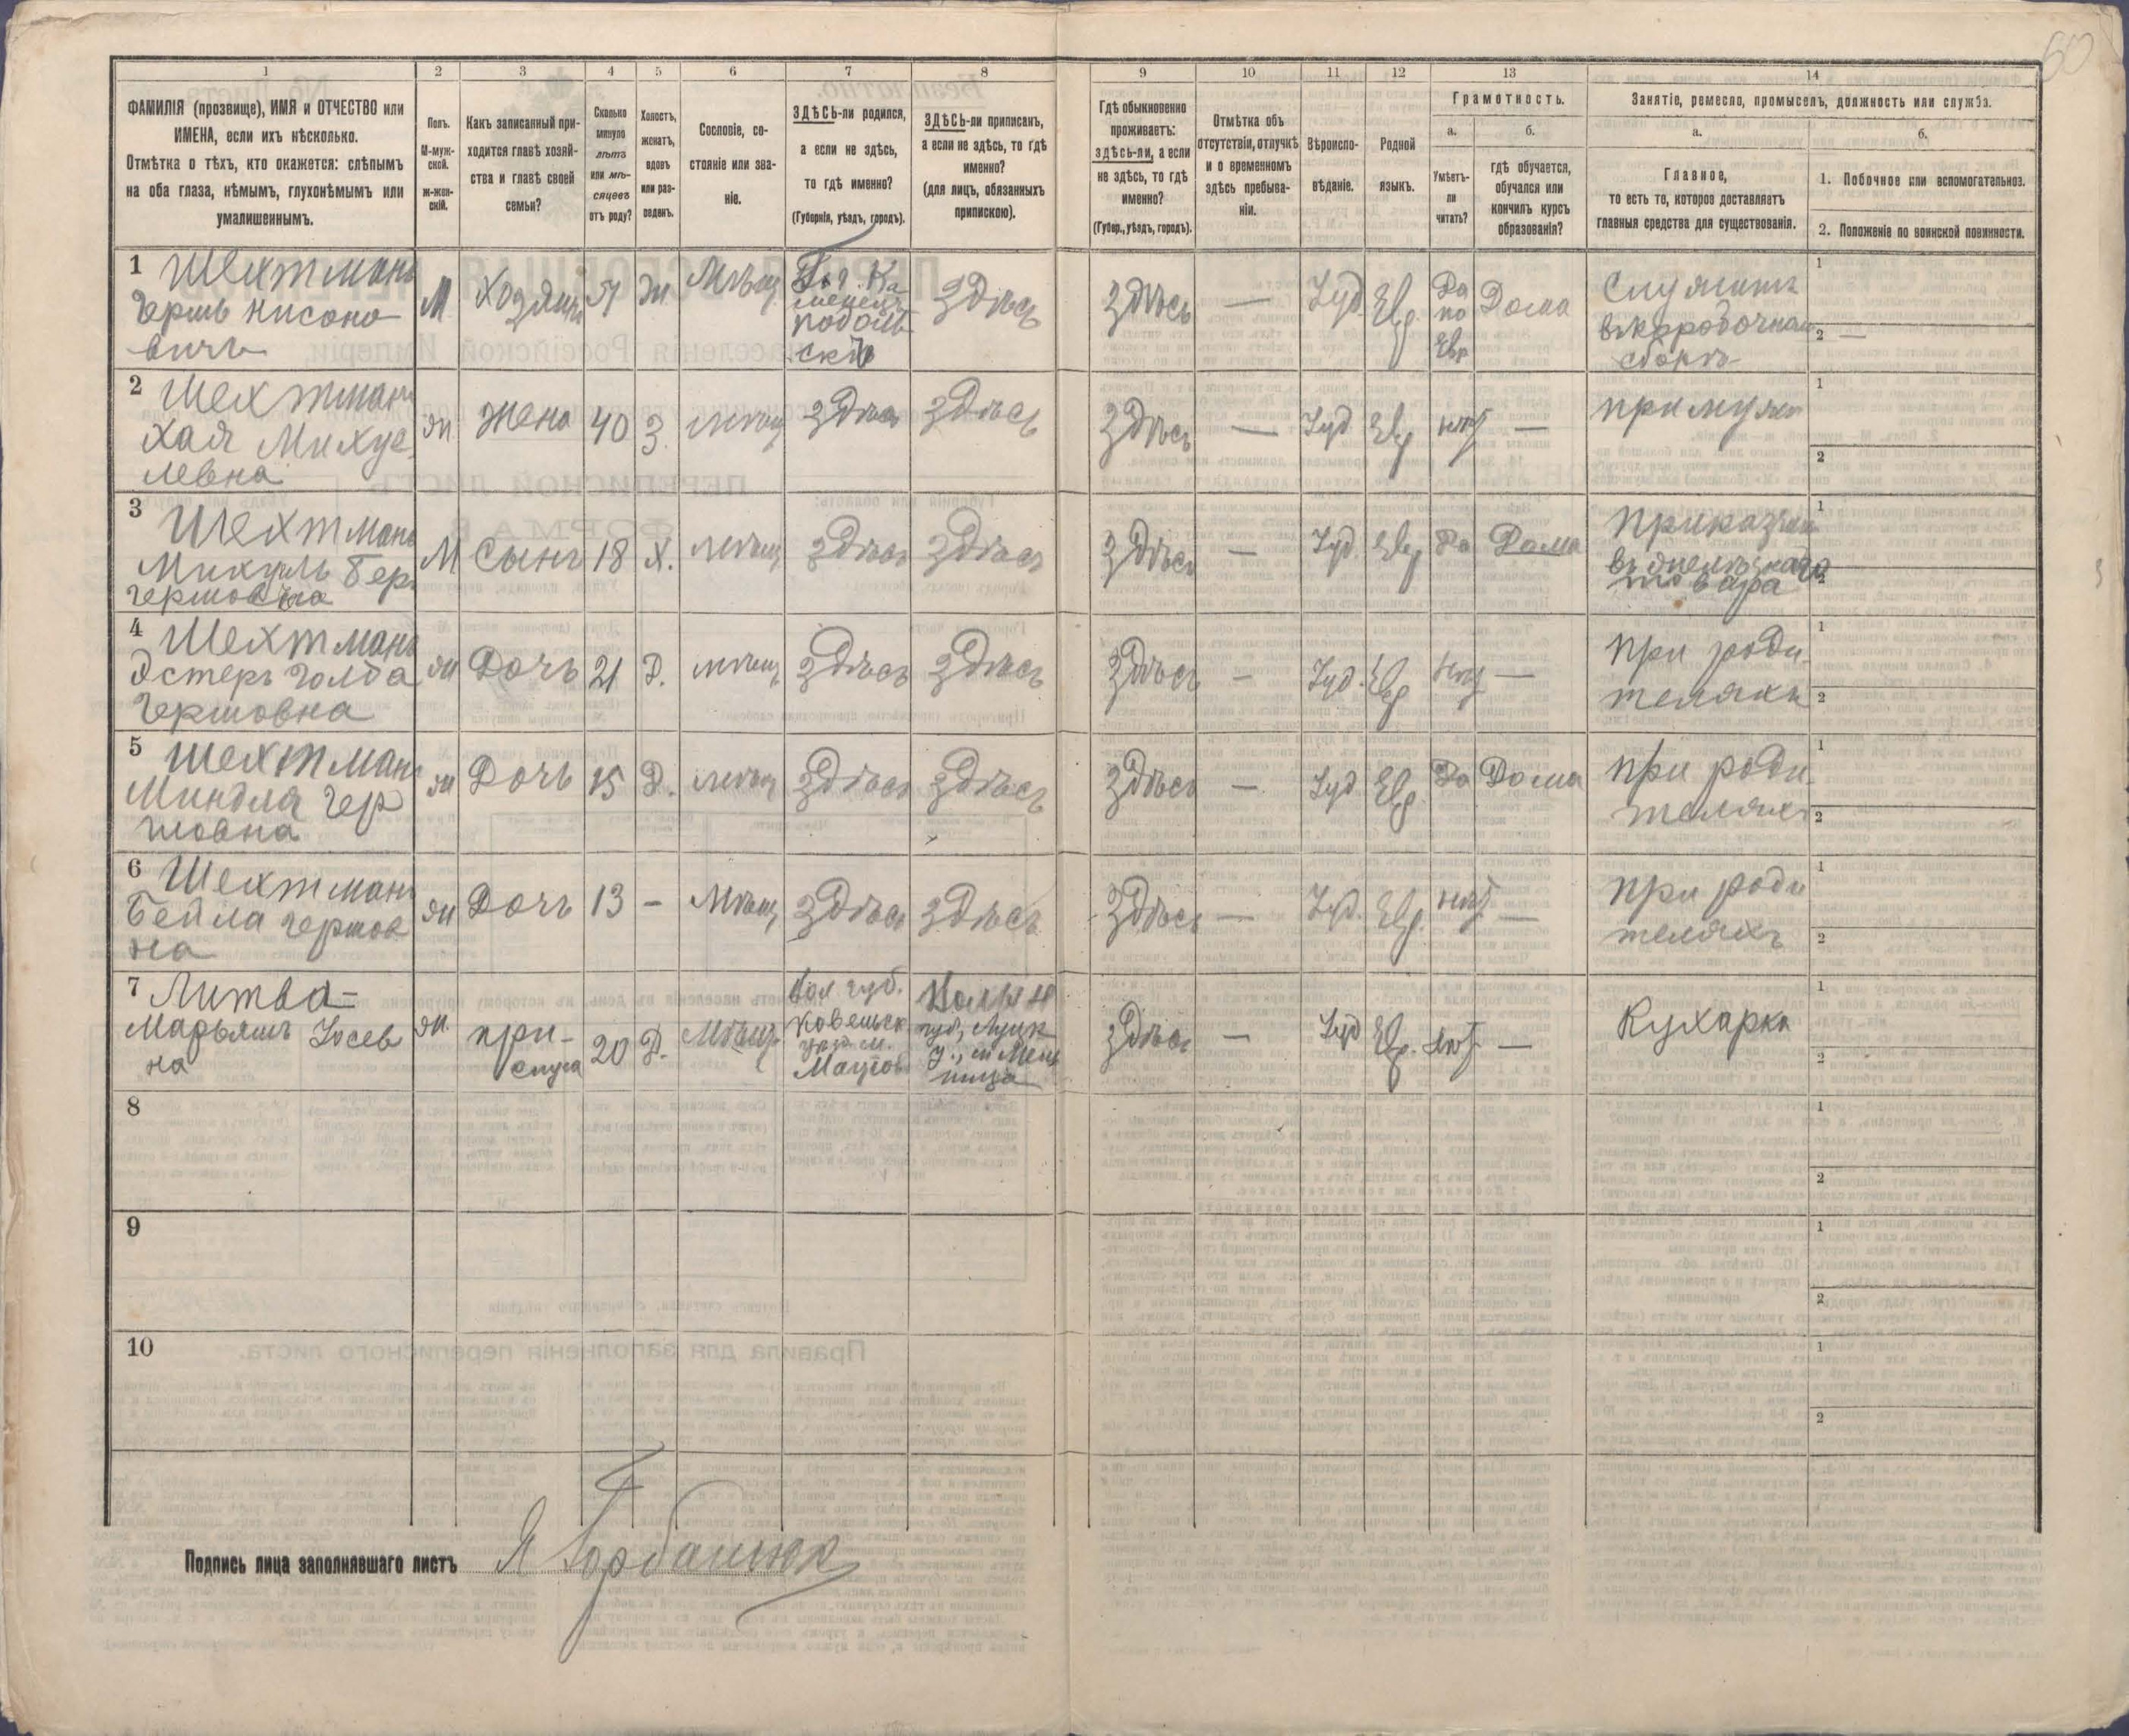 60
1 2 3 4 5 6 7 8 9 10 11 12 13 14
ФАМИЛІЯ (прозвище), ИМЯ и ОТЧЕСТВО или
ИМЕНА, если ихъ нѣсколько.
Отмѣтка о тѣхъ, кто окажется: слѣпымъ
на оба глаза, нѣмымъ, глухонѣмымъ или
умалишеннымъ.
Полъ.
М-муж-
ской.
ж-жен-
скій.
Какъ записанный при-
ходится главѣ хозяй-
ства и главѣ своей
семьи?
Сколько
минуло
лѣтъ
или мѣ-
сяцевъ
отъ роду?
Холостъ,
женатъ,
вдовъ
или раз-
веденъ.
Сословіе, со-
стояніе или зва-
ніе.
ЗДѢСЬ-ли родился,
а если не здѣсь,
то гдѣ именно?
(Губернія, уѣздъ, городъ).
ЗДѢСЬ-ли приписанъ,
а если не здѣсь, то гдѣ
именно?
(для лицъ, обязанныхъ
припискою).
Гдѣ обыкновенно
проживаетъ:
здѣсь-ли, а если
не здѣсь, то гдѣ
именно?
(Губер., уѣздъ, городъ).
Отмѣтка объ
отсутствіи, отлучкѣ
и о временномъ
здѣсь пребыва-
ніи.
Вѣроиспо-
вѣданіе.
Родной
языкъ.
Грамотность.
а.
Умѣетъ-
ли
читать?
б.
гдѣ обучается,
обучался или
кончилъ курсъ
образованія?
Занятіе, ремесло, промыселъ, должность или служба.
а.
Главное,
то есть то, которое доставляетъ
главныя средства для существованія.
б.
1. Побочное или вспомогательное.
2. Положеніе по воинской повинности.
1 Шехтманъ
Гершъ Нисоно
вичъ
М
Хозяинъ
51
Ж
Мѣщ
Ка
менецъ
подоль
скій
Здѣсь
Здѣсь
—
Іуд
Евр.
Да
по
Евр
Дома
Служитъ
въ коробочном
сборѣ
1
2 —
2 Шехтманъ
Хая Михуе
левна
ж
Жена
40
З.
мѣщ
здѣсь
здѣсь
Здѣсь
—
Іуд
Евр
нѣт
—
при муже
1
2
3 Шехтманъ
Михуль Гер
М
Сынъ
18
Х.
мѣщ
здѣсь
здѣсь
здѣсь
—
Іуд.
Евр
Да
Дома
приказчик
товара
1
2
4 Шехтманъ
Эстеръ Голда
Гершовна
ж
Дочь
21
Д.
мѣщ
здѣсь
здѣсь
здѣсь
—
Іуд.
Евр
нѣт
—
при роди
теляхъ
1
2
5 Шехтманъ
Миндля Гер
шовна
ж
Дочь
15
Д.
мѣщ
здѣсь
здѣсь
здѣсь
—
Іуд
Евр.
Да
Дома
при роди
теляхъ
1
2
6 Шехтманъ
Бейла Гершов
на
ж
Дочь
13
—
Мѣщ
здѣсь
здѣсь
здѣсь
—
Іуд.
Евр.
нѣт
—
при роди
теляхъ
1
2
7 Литва
Марьямъ Іосев
на
ж.
при-
слуга
20
Д.
Мѣщ
Вол губ.
Ковельск
Мацѣов
Волын
губ, Луцк
у.,
здѣсь
—
Іуд
Евр.
нѣт
—
Кухарка
1
2
8
1
2
9
1
2
10
1
2
Подпись лица заполнявшаго листъ Я Горбатюк